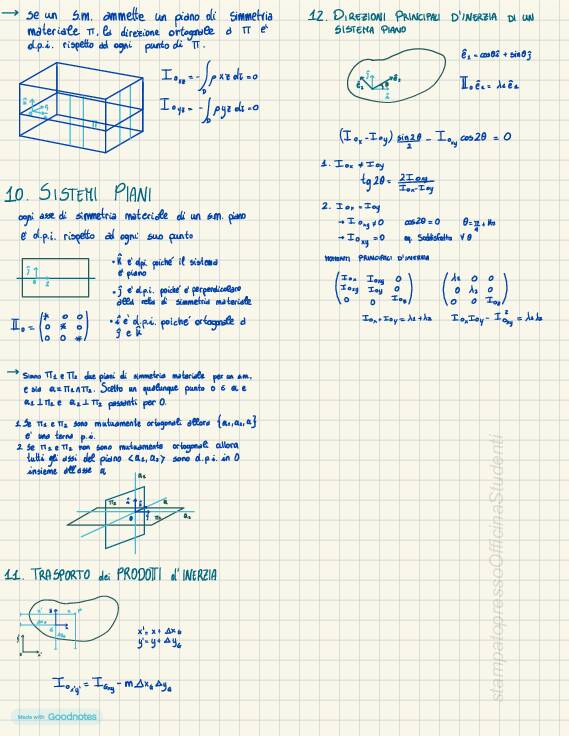 → se un S.M. ammette un piano di simmetria
materiale π, la direzione ortogonale a π e'
d.p.i. rispetto ad ogni punto di π.
I₀ₓz = -∫_D ρxz dτ = 0
I₀yz = -∫_D ρyz dτ = 0
10. SISTEMI PIANI
ogni asse di simmetria materiale di un s.m. piano
e' d.p.i. rispetto ad ogni suo punto
• k̂ e' dpi poiché il sistema
e' piano
• ĵ e' d.p.i. poiche' e' perpendicolare
alla retta di simmetria materiale
• î e' d.p.i. poiche' ortogonale a
ĵ e k̂
𝕀₀ = (* 0 0
0 * 0
0 0 *)
→ Siano π₁ e π₂ due piani di simmetria materiale per un s.m.
e sia a = π₁∩π₂. Scelto un qualunque punto O ∈ a e
a₁⊥π₁ e a₂⊥π₂ passanti per O.
1. Se π₁ e π₂ sono mutuamente ortogonali allora {a₁, a₂, a}
e' una terna p.i.
2 Se π₁ e π₂ non sono mutuamente ortogonali allora
tutti gli assi del piano <a₁, a₂> sono d.p.i. in O
insieme all'asse a
11. TRASPORTO dei PRODOTTI d'INERZIA
x' = x + Δx_G
y' = y + Δy_G
I₀ₓ'y' = I_Gxy - mΔx_GΔy_G
Made with Goodnotes
12. DIREZIONI PRINCIPALI D'INERZIA DI UN
SISTEMA PIANO
ê₁ = cosθî + sinθĵ
𝕀₀ê₁ = λ₁ê₁
(I₀ₓ - I₀y) sin2θ/2 - I₀ₓy cos2θ = 0
1. I₀ₓ ≠ I₀y
tg2θ = 2I₀ₓy/(I₀ₓ - I₀y)
2. I₀ₓ = I₀y
→ I₀ₓy ≠ 0 cos2θ = 0
→ I₀ₓy = 0 eq. Soddisfatta ∀ θ
MOMENTI PRINCIPALI D'INERZIA
(I₀ₓ I₀ₓy 0
I₀ₓy I₀y 0
0 0 I₀z) (λ₁ 0 0
0 λ₂ 0
0 0 I₀z)
I₀ₓ + I₀y = λ₁ + λ₂ I₀ₓI₀y - I₀ₓy² = λ₁λ₂
stampatopressoOfficinaStudenti